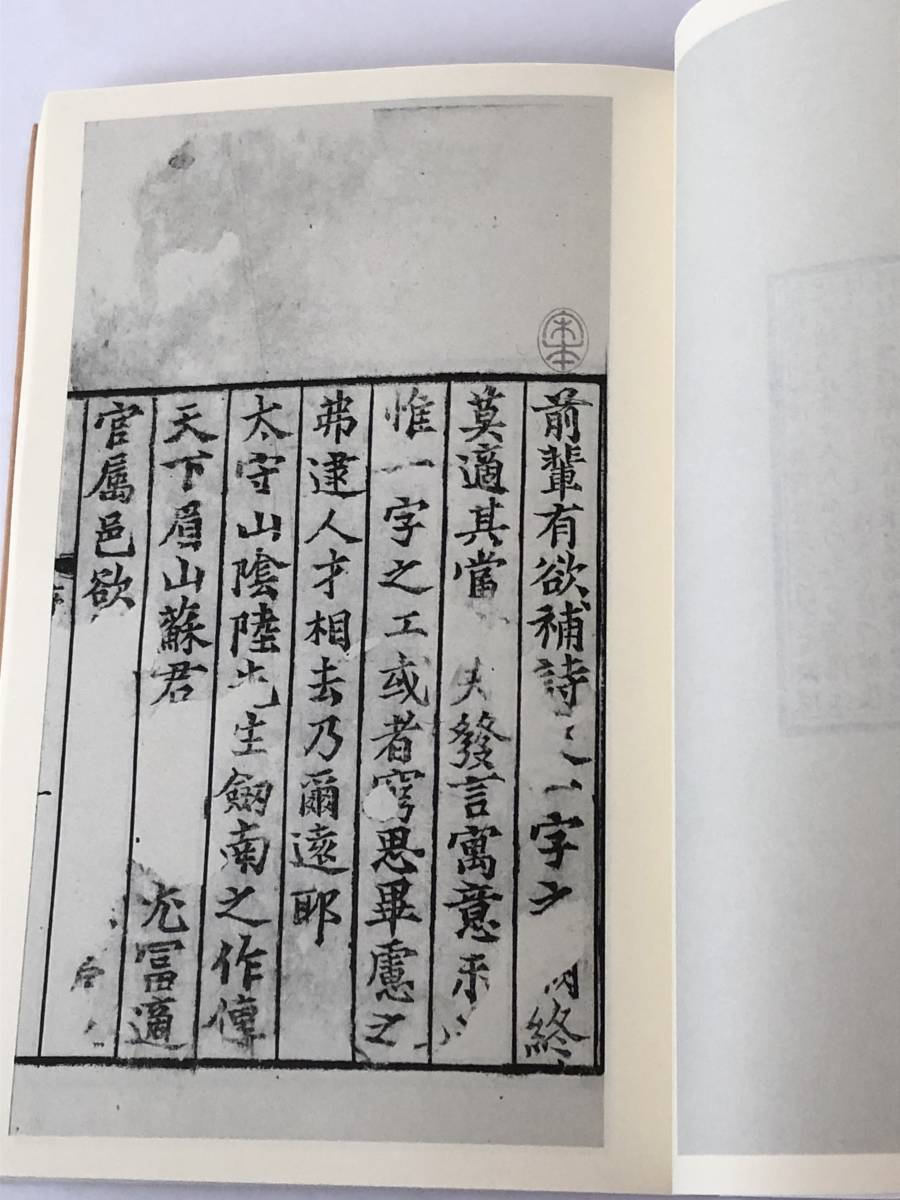 宋本
前輩有欲補詩之一字之 終
莫適其當 夫發言寓意未
惟一字之工或者窮思畢慮之
弗逮人才相去乃爾遠耶
太守山陰陸先生劔南之作傳
天下眉山蘇君 尤富適
官屬邑欲